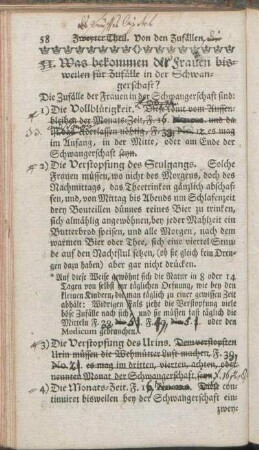 58 Zweyter Theil. Von den Zufällen,
51. Was bekommen die Frauen bis-
weilen für Zufälle in der Schwan-
gerschaft?
Die Zufälle der Frauen in der Schwangerschaft sind:
1) Die Vollblütigkeit. Diese kömt vom Aussen-
bleiben der Monats-Zeit, F. 16. und da
ist das Aderlassen nöthig, F. 33. No. 12. es mag
im Anfang, in der Mitte, oder am Ende der
Schwangerschaft seyn.
2) Die Verstopfung des Stulgangs. Solche
Frauen müssen, wo nicht des Morgens, doch des
Nachmittags, das Theetrinken gänzlich abschaf-
fen, und, von Mittag bis Abends um Schlafenszeit
drey Bouteillen dünnes Bier zu trinken,
sich allmählig angewöhnen, bey jeder Mahlzeit ein
Butterbrod speisen, und alle Morgen, nach dem
warmen Bier oder Thee, sich eine viertel Stun-
de auf den Nachtstul setzen, (ob sie gleich kein Dren-
gen dazu haben) aber gar nicht drücken.
* Auf diese Weise gewöhnt sich die Natur in 8 oder 14
Tagen von selbst zur täglichen Oefnung, wie bey den
kleinen Kindern, bidman täglich zu einer gewissen Zeit
abhält: Widrigen Fals zieht die Verstopfung viele
böse Zufälle nach sich, und sie müssen fast täglich die
Mitteln F. 29. oder den
Medicum gebrauchen.
3) Die Verstopfung des Urins. Dem verstopften
Urin müssen die Wehmütter Luft machen, F. 39,
es mag im dritten, vierten, achten, oder
neunten Monat der Schwangerschaft seyn.
4) Die Monats-Zeit. F. 16. Diese con-
tinuiret bisweilen bey der Schwangerschaft ein-
zwey-